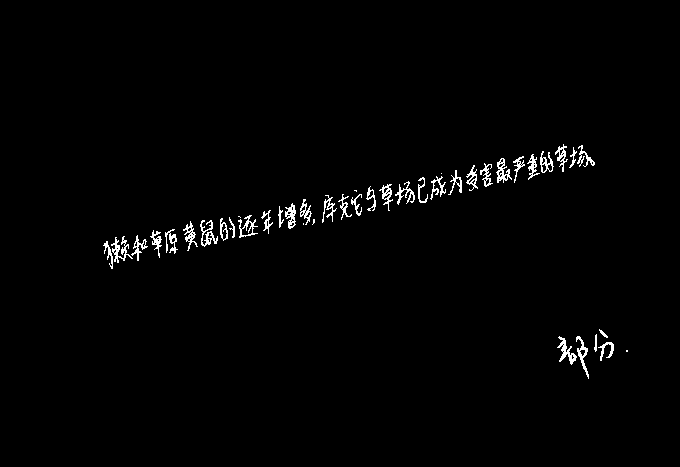 獭和草原黄鼠的逐年增多,库克它乌草场已成为受害最严重的草场。
部分.